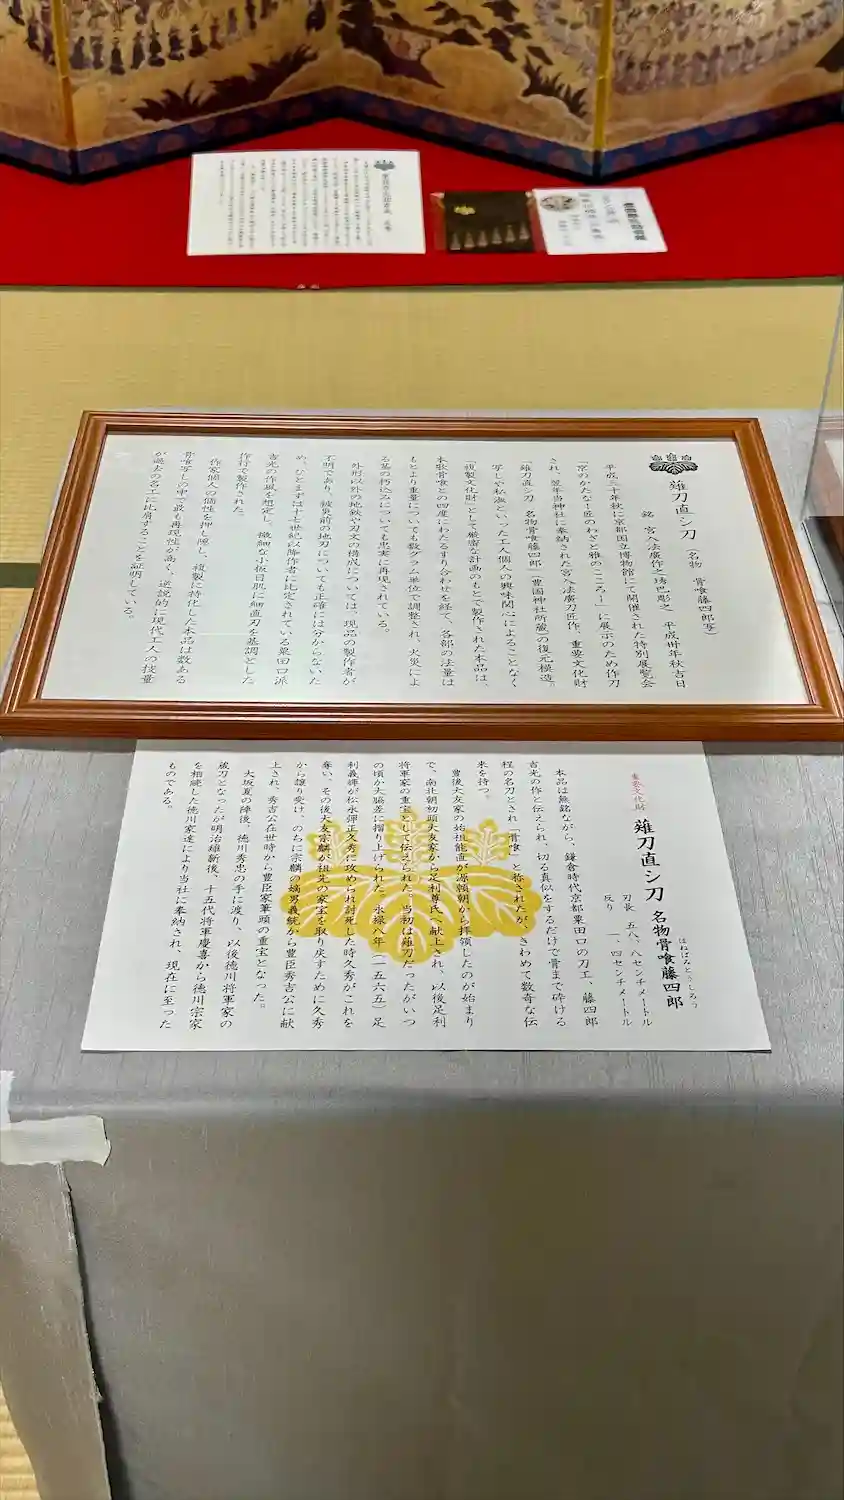 薙刀直シ刀(名物 骨喰藤四郎写)
銘 宮入法廣作之琇巴彫之 平成卅年秋吉日
平成三十年秋に京都国立博物館にて開催された特別展覧会
「京のかたな-匠のわざと雅のこころ-」に展示のため作刀
され、翌年当神社に奉納された宮入法廣刀匠作、重要文化財
「薙刀直シ刀 名物骨喰藤四郎」(豊国神社所蔵)の復元模造。
写しや私淑といった工人個人の興味関心によることなく
「複製文化財」として厳密な計画のもとで製作された本品は、
本歌骨喰との四度にわたるすり合わせを経て、各部の法量は
もとより重量についても数グラム単位で調整され、火災によ
る茎の朽込みについても忠実に再現されている。
外形以外の地鉄や刃文の構成については、現品の製作者が
不明であり、被災前の地刃についても正確には分からないた
め、ひとまずは十七世紀以降作者に比定されている粟田口派
吉光の作風を想定し、微細な小板目肌に細直刃を基調とした
作行で製作された。
作家個人の個性を押し隠し、複製に特化した本品は数ある
骨喰写しの中で最も再現性が高く、逆説的に現代工人の技量
が過去の名工に比肩することを証明している。
重要文化財 薙刀直シ刀 名物骨喰藤四郎
ほねばみとうしろう
刃長 五八、八センチメートル
反り 一、四センチメートル
本品は無銘ながら、鎌倉時代京都粟田口の刀工、藤四郎
吉光の作と伝えられ、切る真似をするだけで骨まで砕ける
程の名刀とされ「骨喰」と称されたが、きわめて数奇な伝
来を持つ。
豊後大友家の始祖能直が源頼朝から拝領したのが始まり
で、南北朝初頭大友家から足利尊氏へ献上され、以後足利
将軍家の重宝として伝えられた。当初は薙刀だったがいつ
の頃か大脇差に摺り上げられた。永禄八年(一五六五)足
利義輝が松永弾正久秀に攻められ討死した時久秀がこれを
奪い、その後大友宗麟が祖先の家宝を取り戻すために久秀
から譲り受け、のちに宗麟の嫡男義統から豊臣秀吉公に献
上され、秀吉公在世時から豊臣家筆頭の重宝となった。
大坂夏の陣後、徳川秀忠の手に渡り、以後徳川将軍家の
蔵刀となったが明治維新後、十五代将軍慶喜から徳川宗家
を相続した徳川家達により当社に奉納され、現在に至った
ものである。